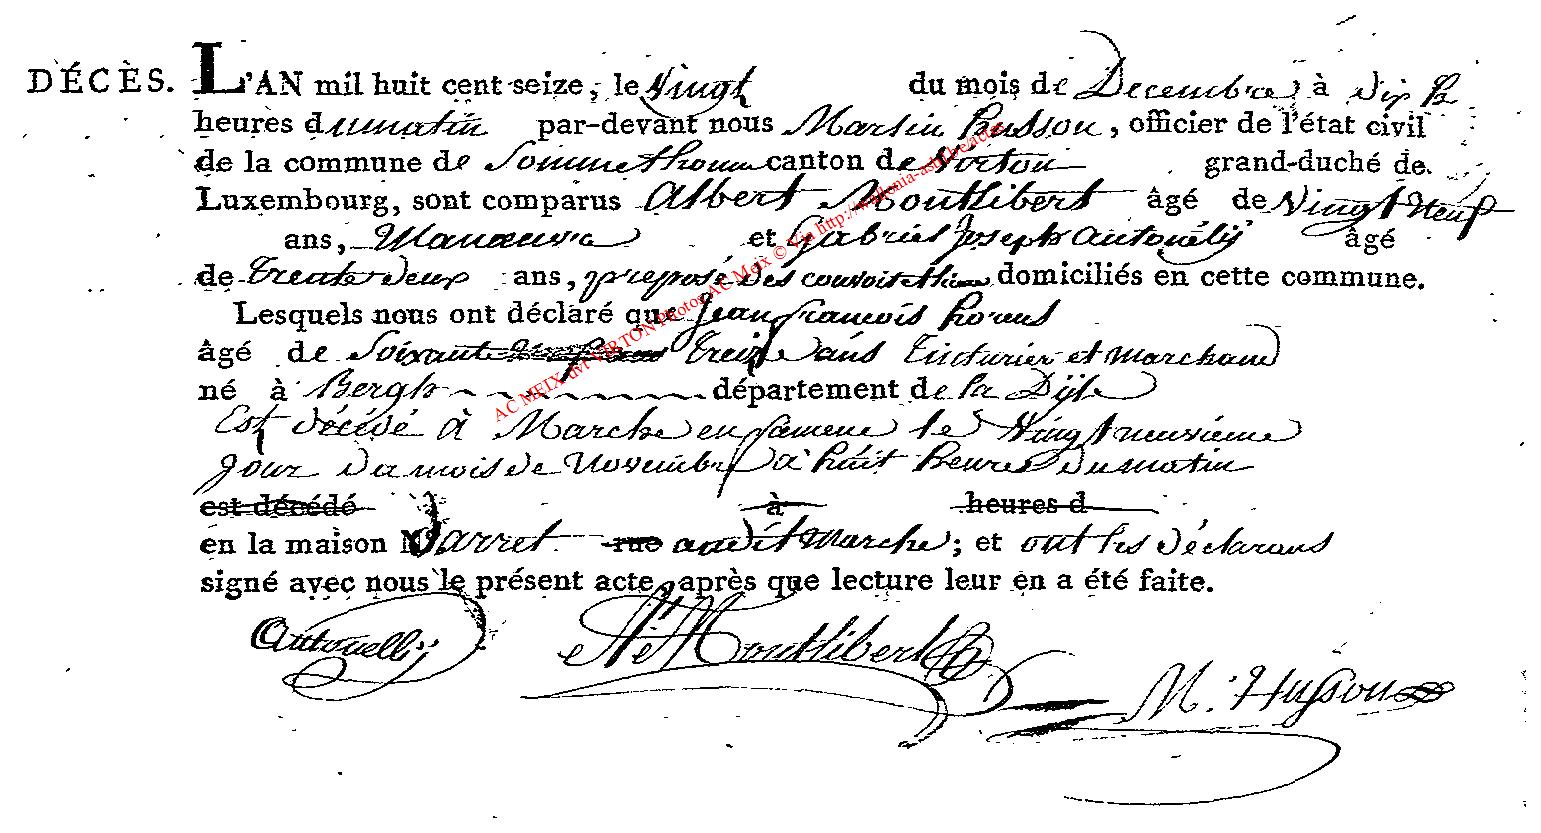 DÉCÈS. L'AN mil huit cent seize, le Vingt du mois de Decembre, à dix h
heures du matin par-devant nous Martin husson, officier de l'état civil
de la commune de Sommethonne canton de Virton grand-duché de
Luxembourg, sont comparus Albert Montlibert âgé de Vingt Neuf
ans, Manœuvre et Gabriel Joseph Antonelÿ âgé
de trente deux ans, preposé des domiciliés en cette commune.
Lesquels nous ont déclaré que Jean françois horens
âgé de Soixante Treize ans Tinturier et marchand
né à Bergh département de la Dÿle
Est décédé à Marche en famene le Vingt neuvieme
Jour du mois de Novembre à huit heures du matin
est décédé à heures d
en la maison Darret rue audit Marche; et ont les déclarans
signé avec nous le présent acte, après que lecture leur en a été faite.
Antonellÿ At Montlibert M. Husson
AC MEIX dvt VIRTON Photos AC Meix © Via http://wallonia-asbl.be/actes